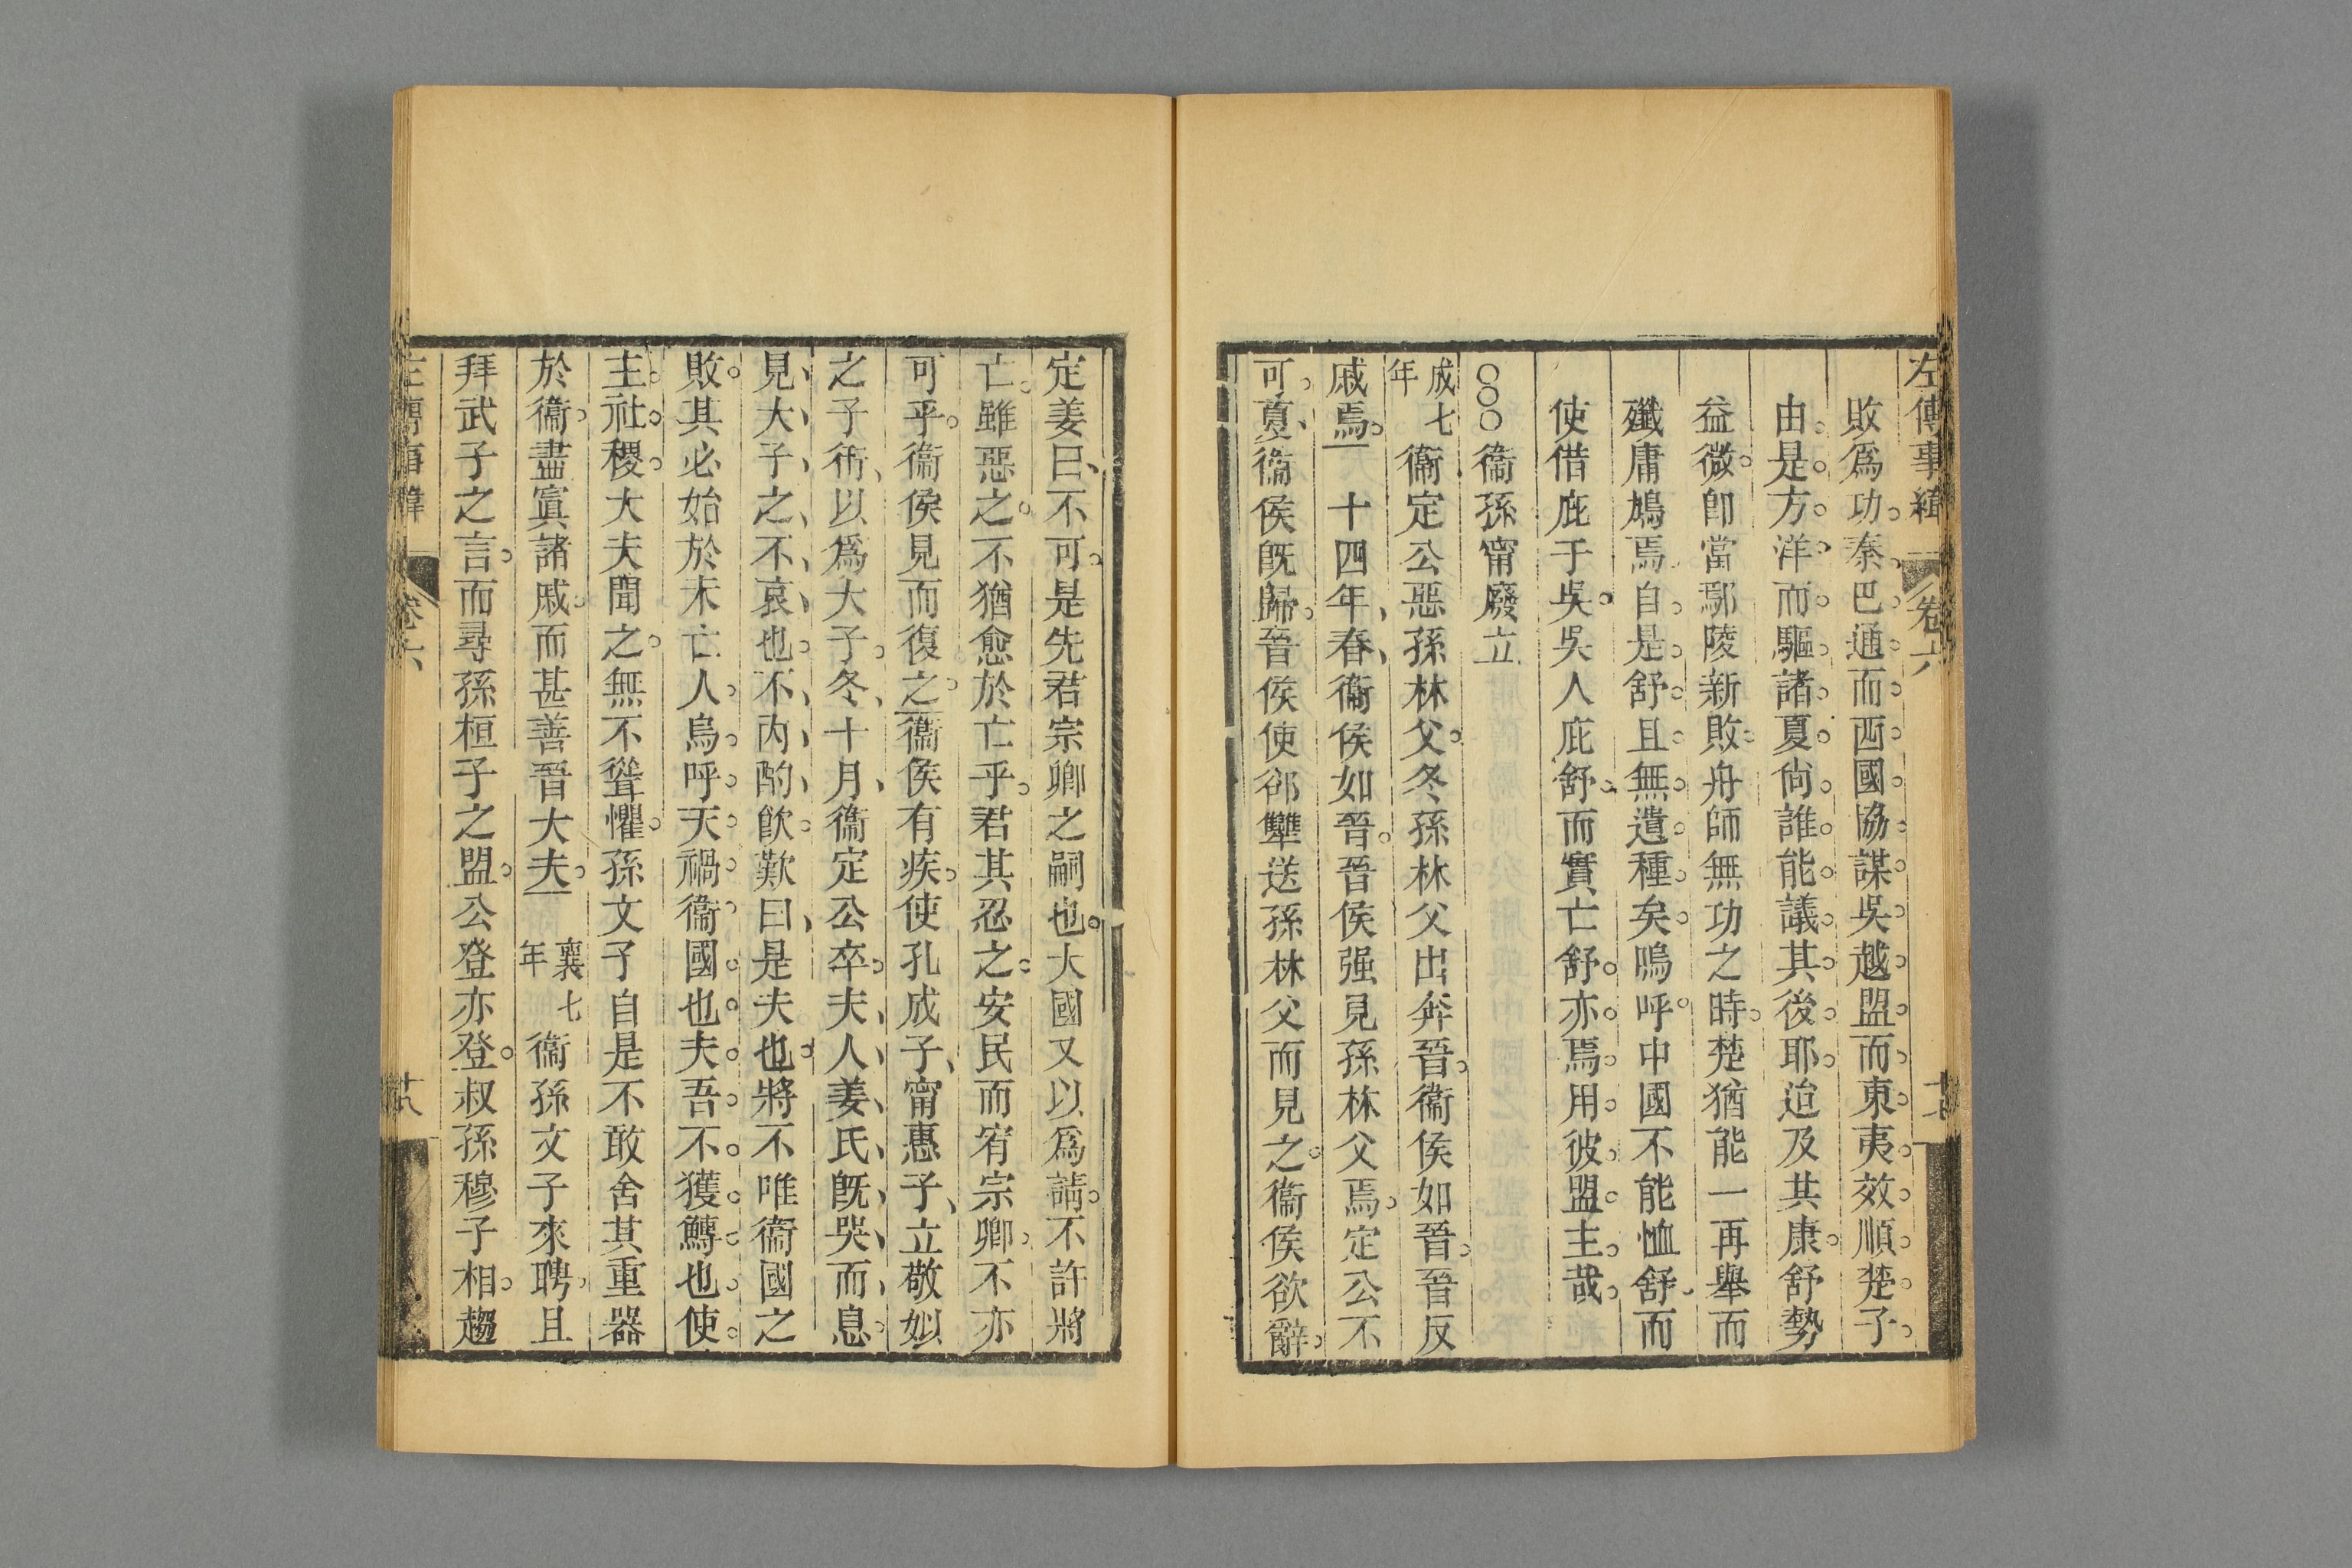 左傳事緯 卷六
敗爲功。秦。巴。通。而。西。國。協。謀。吳。越。盟。而。東。夷。效。順。楚。子。
由。是。方。洋。而。驅。諸。夏。尙。誰。能。議。其。後。耶。迨及其康。舒勢
益微。卽當鄢陵新敗。舟師無功之時。楚猶能一再舉而
殲庸鳩焉。自。是。舒。且。無。遺。種。矣。嗚呼。中國不能恤舒。而
使借庇于吳。吳人庇舒。而實亡舒。亦。焉。用。彼。盟。主。哉。
○○○衞孫甯廢立
成七年 衞定公惡孫林父。冬孫林父出奔晉。衞侯如晉。晉反
戚焉。十四年、春、衞侯如晉。晉侯强見孫林父焉。定公不
可。夏、衞侯旣歸。晉侯使郤犨送孫林父而見之。衞侯欲辭。
定姜曰、不可。是先君宗卿之嗣也。大國又以爲請。不許將
亡。雖惡之。不猶愈於亡乎。君其忍之。安民而宥宗卿。不亦
可乎。衞侯見而復之。衞侯有疾。使孔成子、甯惠子、立敬姒
之子衎、以爲大子。冬、十月、衞定公卒。夫、人、姜、氏、旣、哭、而、息。
見、大、子、之、不、哀、也。不、內、酌、飮。歎曰、是夫也。將不唯衞國之
敗。其必始於未亡人。烏。呼。天。禍。衞。國。也。夫。吾。不。獲。鱄。也。使。
主。社。稷。大夫聞之。無不聳懼。孫文子自是不敢舍其重器
於衞。盡寘諸戚。而甚善晉大夫。 襄七年 衞孫文子來聘。且
拜武子之言。而尋孫桓子之盟。公登亦登。叔孫穆子相。趨
左傳事緯 卷六 十八